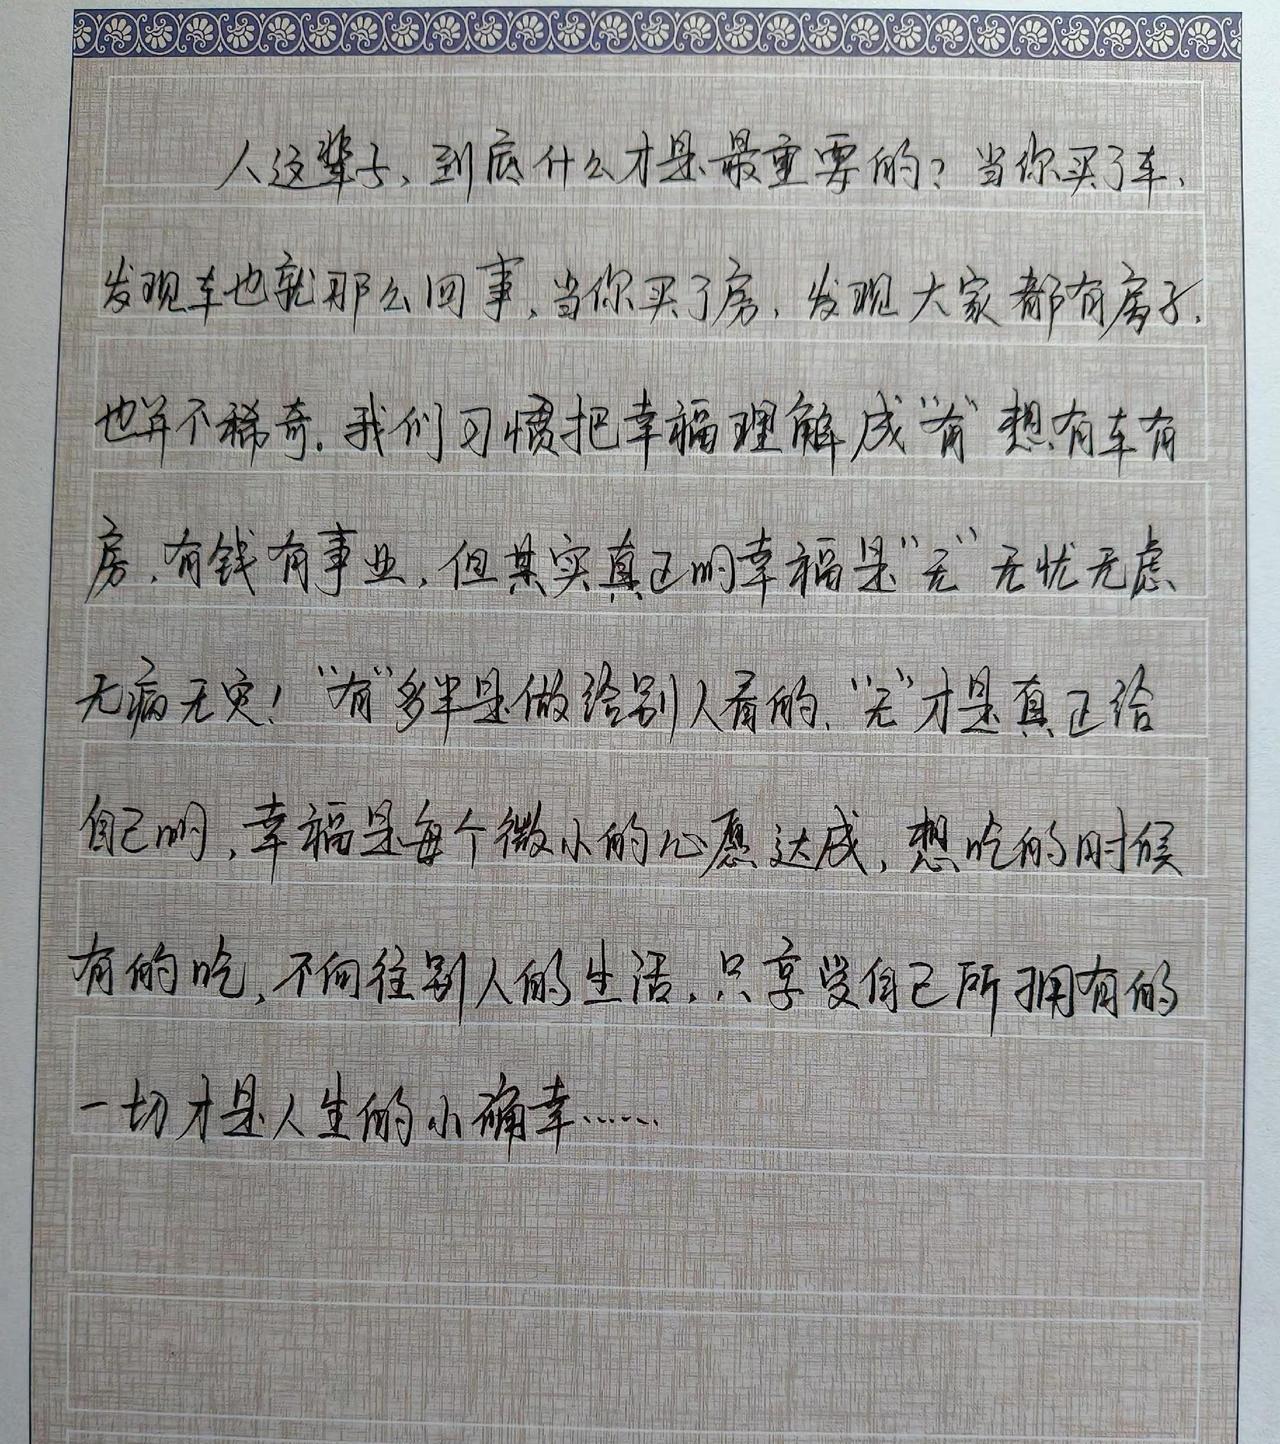 人这辈子,到底什么才是最重要的?当你买了车,
发现车也就那么回事,当你买了房,发现大家都有房子,
也并不稀奇。我们习惯把幸福理解成“有”想有车有
房,有钱有事业,但其实真正的幸福是“无”无忧无虑
无病无灾!“有”多半是做给别人看的,“无”才是真正给
自己的,幸福是每个微小的心愿达成,想吃的时候
有的吃,不向往别人的生活,只享受自己所拥有的
一切才是人生的小确幸……